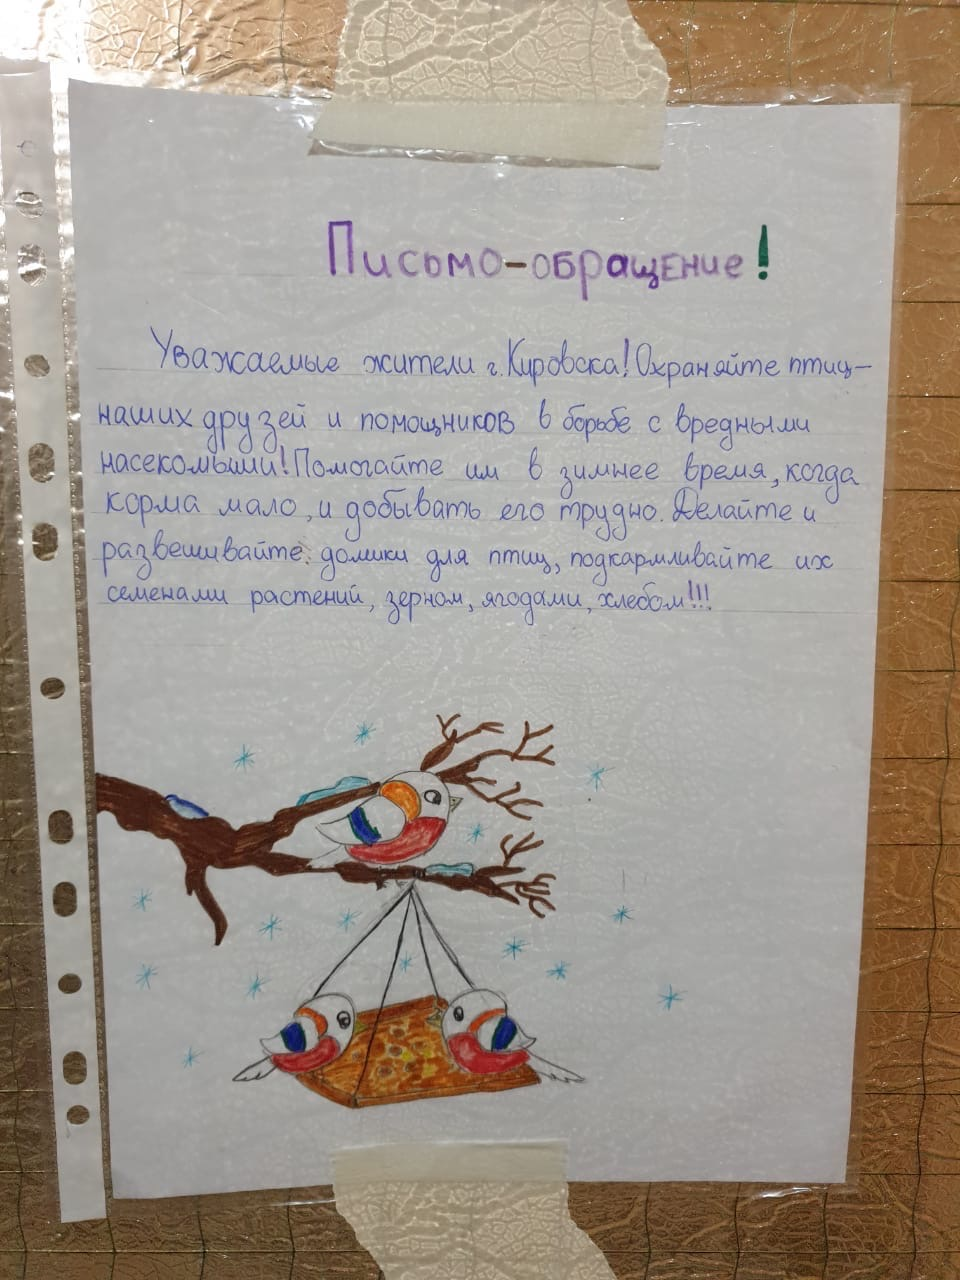 Письмо-обращение!
Уважаемые жители г. Кировска! Охраняйте птиц-
наших друзей и помощников в борьбе с вредными
насекомыми! Помогайте им в зимнее время, когда
корма мало, и добывать его трудно. Делайте и
развешивайте домики для птиц, подкармливайте их
семенами растений, зерном, ягодами, хлебом!!!